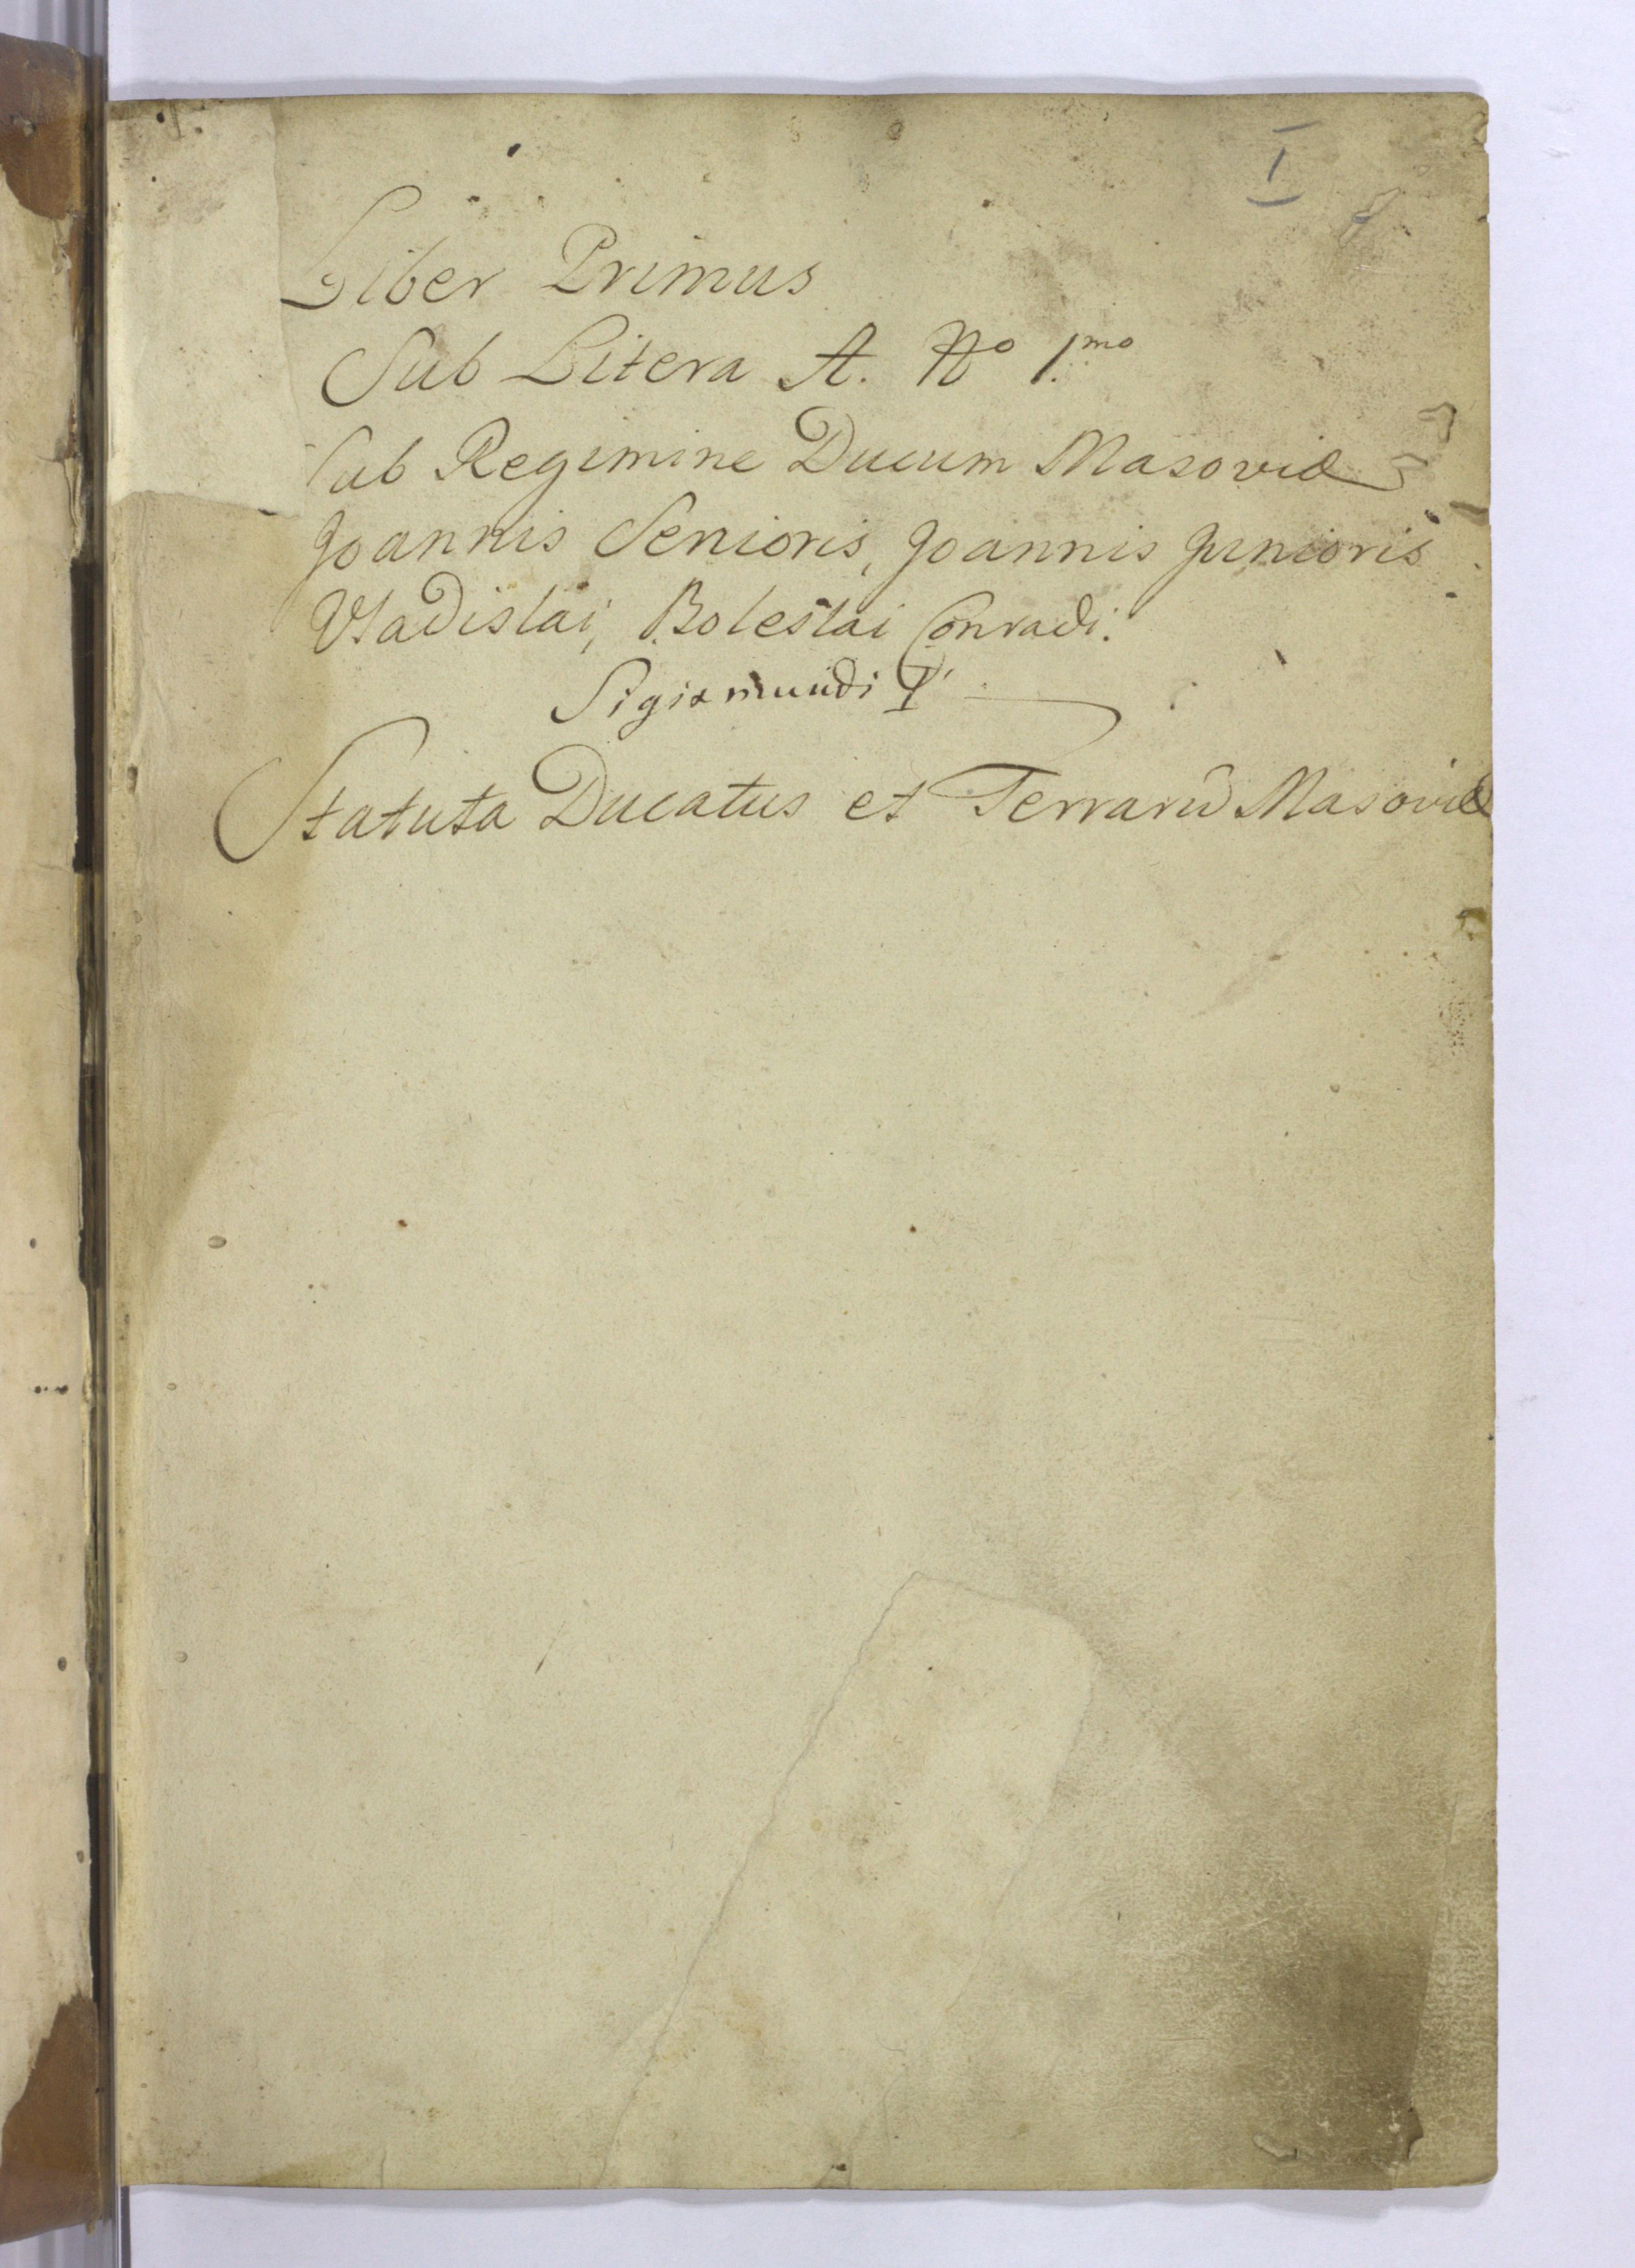 I
Liber Primus
Sub Litera A. No 1.mo
Sub Regimine Ducum Masoviæ
Joannis Senioris, Joannis Junioris
Vladislai, Boleslai Conradi.
Sigismundi I
Statuta Ducatus et Terrarũ Masoviæ